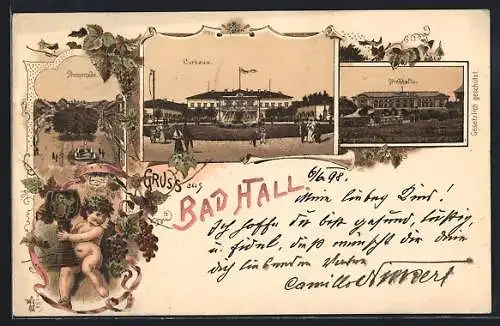 Promenade.
Curhaus.
Trinkhalle.
Gesetzlich geschützt.
Gruss aus
BAD HALL
6/6 98.
Mein liebes Kind!
Ich hoffe du bist gesund, lustig,
u. fidel, dieß wünscht dir dein
dich liebender Vater
Camillo